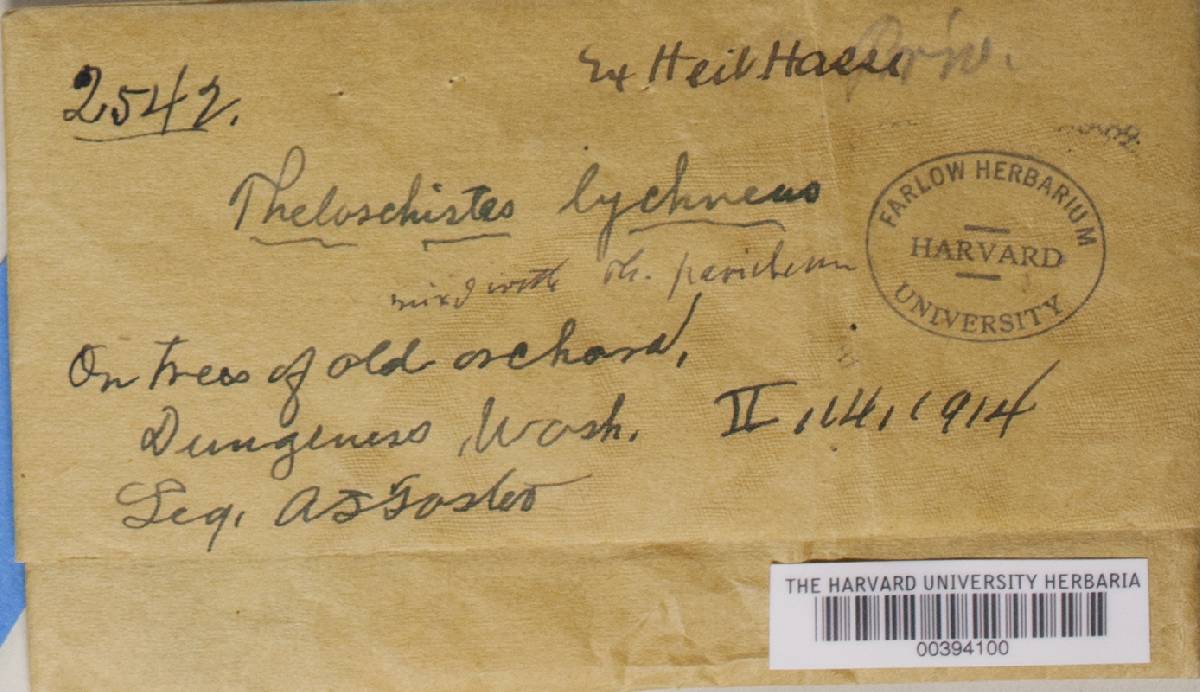 2542.
Ex Herb Hasse
Theloschistes lychneus
mixd with Th. parietinum
On trees of old orchard,
Dungeness, Wash. II, 14, 1914
Leg. AS Foster
FARLOW HERBARIUM
HARVARD
UNIVERSITY
THE HARVARD UNIVERSITY HERBARIA
00394100